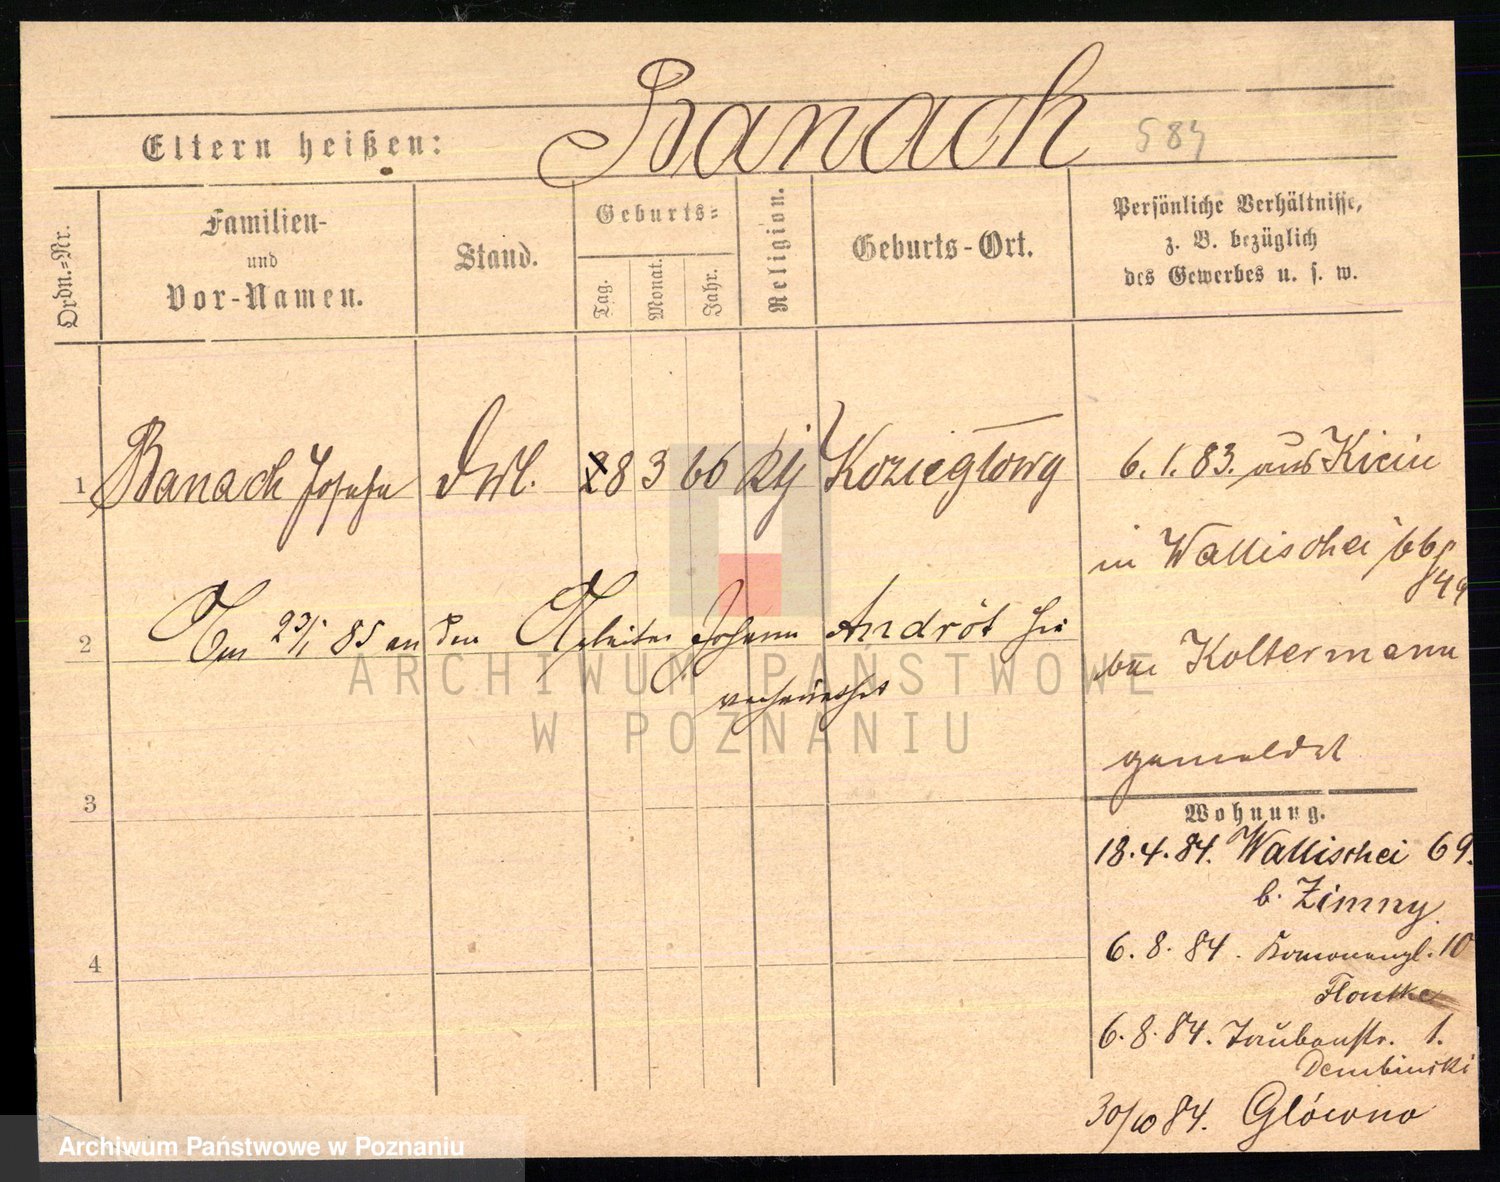 Banach
584
Eltern heißen:
Ordn.=Nr.
Familien-
und
Vor-Namen.
Stand.
Geburts=
Tag.
Monat.
Jahr.
Religion.
Geburts-Ort.
Persönliche Verhältnisse,
z. B. bezüglich
des Gewerbes u. s. w.
1 Banach Josepha 8 3 66 Koziegłowy
6. 1. 83. aus Kicin
in Wallischei 66/
bei Koltermann
gemeldet
2 Am 23/1 85 an den Arbeiter Johann Andröt hie
verheirathet
3
4
Wohnung.
18. 4. 84. Wallischei 69.
b. Zimny
6. 8. 84. 10
6. 8. 84. Taubenstr. 1.
Dembinski
30/10 84. Główno
ARCHIWUM PAŃSTWOWE
W POZNANIU
Archiwum Państwowe w Poznaniu